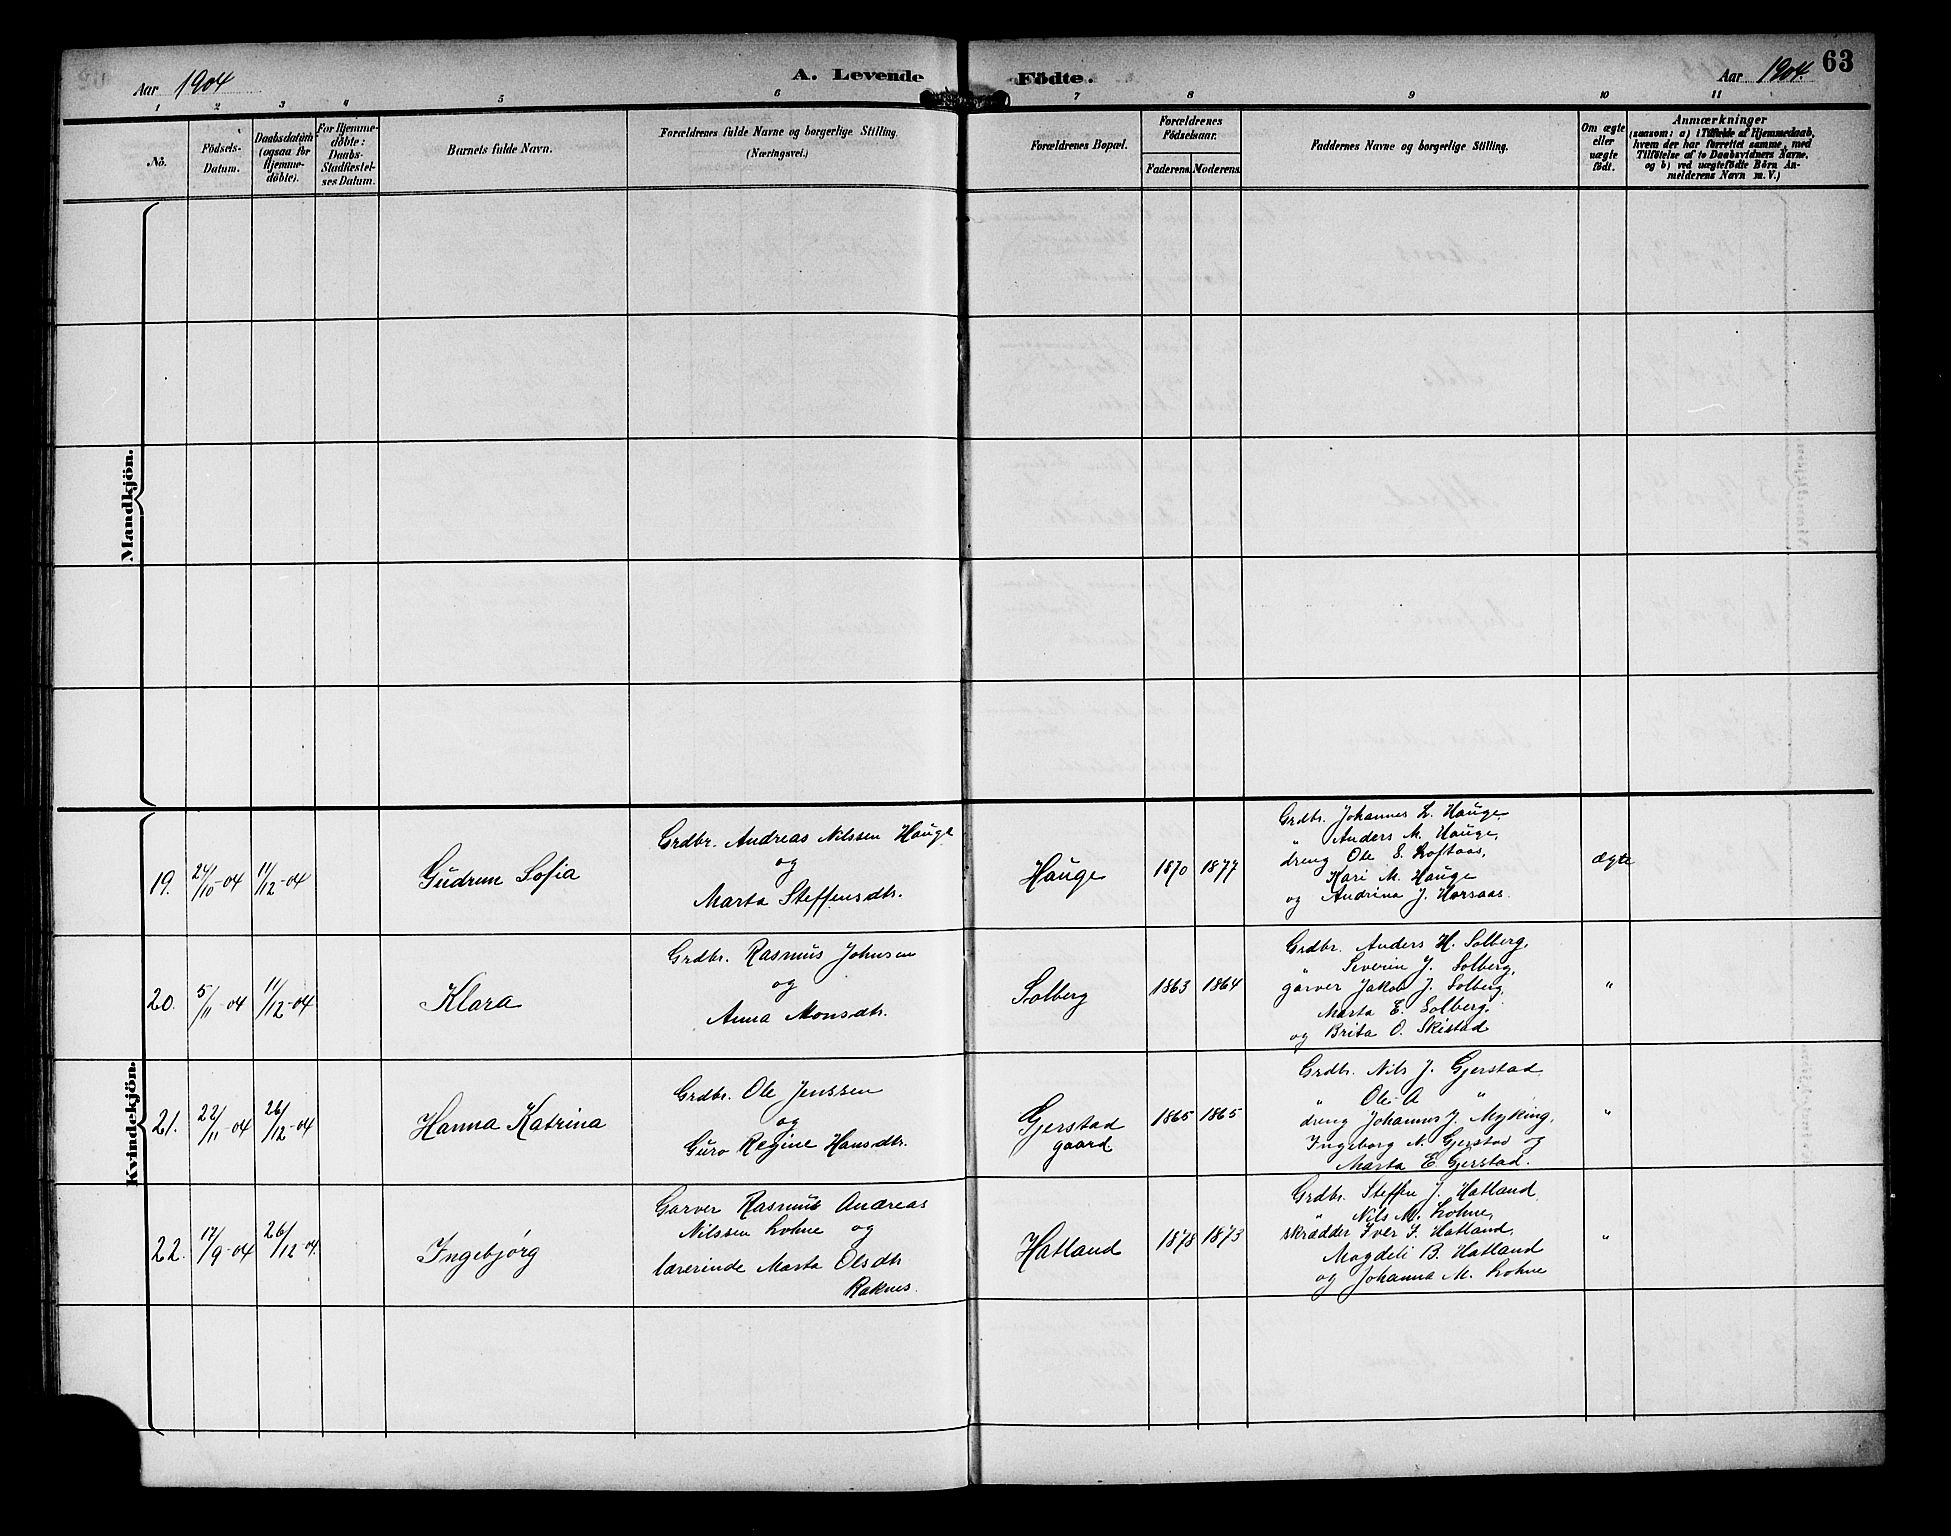 Aar 1904
A. Levende
Födte.
Aar 1904.
63
1 2 3 4 5 6 7 8 9 10 11
No.
Födsels-
Datum.
Daabsdatum
(ogsaa for
Hjemme-
döbte).
For Hjemme-
döbte:
Daabs-
Stadfæstel-
ses Datum.
Barnets fulde Navn.
Forældrenes fulde Navne og borgerlige Stilling.
(Næringsvei.)
Forældrenes Bopæl.
Forældrenes
Födselsaar.
Faderens.
Moderens.
Faddernes Navne og borgerlige Stilling.
Om ægte
eller
uægte
födt.
Anmærkninger
(saasom: a) i Tilfælde af Hjemmedaab,
hvem der har forrettet samme, med
Tilföielse af to Daabsvidners Navne,
og b) ved uægtefödte Börn An-
melderens Navn m. V.)
Mandkjön.
Kvindekjön.
19.
24/10-04
11/12-04
Gudrun Sofia
Grdbr. Andreas Nilssen Hauge
og
Marta Steffensdtr.
Hauge
1870
1877
Grdbr. Johannes L. Hauge,
" Anders M. Hauge,
dreng Ole E. Loftaas,
Kari M. Hauge
og Andrina J. Horsaas.
ægte
20.
5/11-04
11/12-04
Klara
Grdbr. Rasmus Johnsen
og
Anna Monsdtr.
Solberg
1863
1864
Grdbr. Anders H. Solberg,
" Severin J. Solberg,
garver Jakob J. Solberg,
Marta E. Solberg,
og Brita O. Skistad
"
21.
22/11-04
26/12-04
Hanna Katrina
Grdbr. Ole Jenssen
og
Guro Regine Hansdtr.
Gjerstad
gaard
1865
1865
Grdbr. Nils J. Gjerstad
" Ole A "
dreng Johannes J. Myking,
Ingeborg N. Gjerstad og
Marta E. Gjerstad.
"
22.
17/9-04
26/12-04.
Ingebjørg
Garver Rasmus Andreas
Nilssen Lohne og
lærerinde Marta Olsdtr
Raknes.
Hatland
1878
1873
Grdbr. Steffen J. Hatland,
" Nils M. Lohne,
skrædder Iver I. Hatland,
Magdeli B. Hatland
og Johanna M. Lohne
"